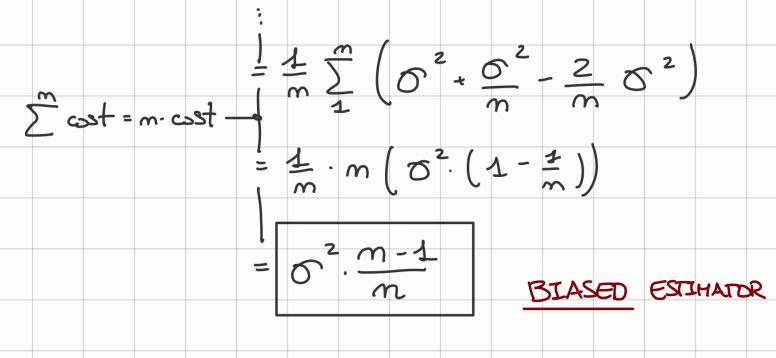 ⋮
= 1/n ∑₁ⁿ (σ² + σ²/n − 2/n σ²)
∑ⁿ cost = n · cost
= 1/n · n (σ² · (1 − 1/n))
= σ² · n−1/n
BIASED ESTIMATOR